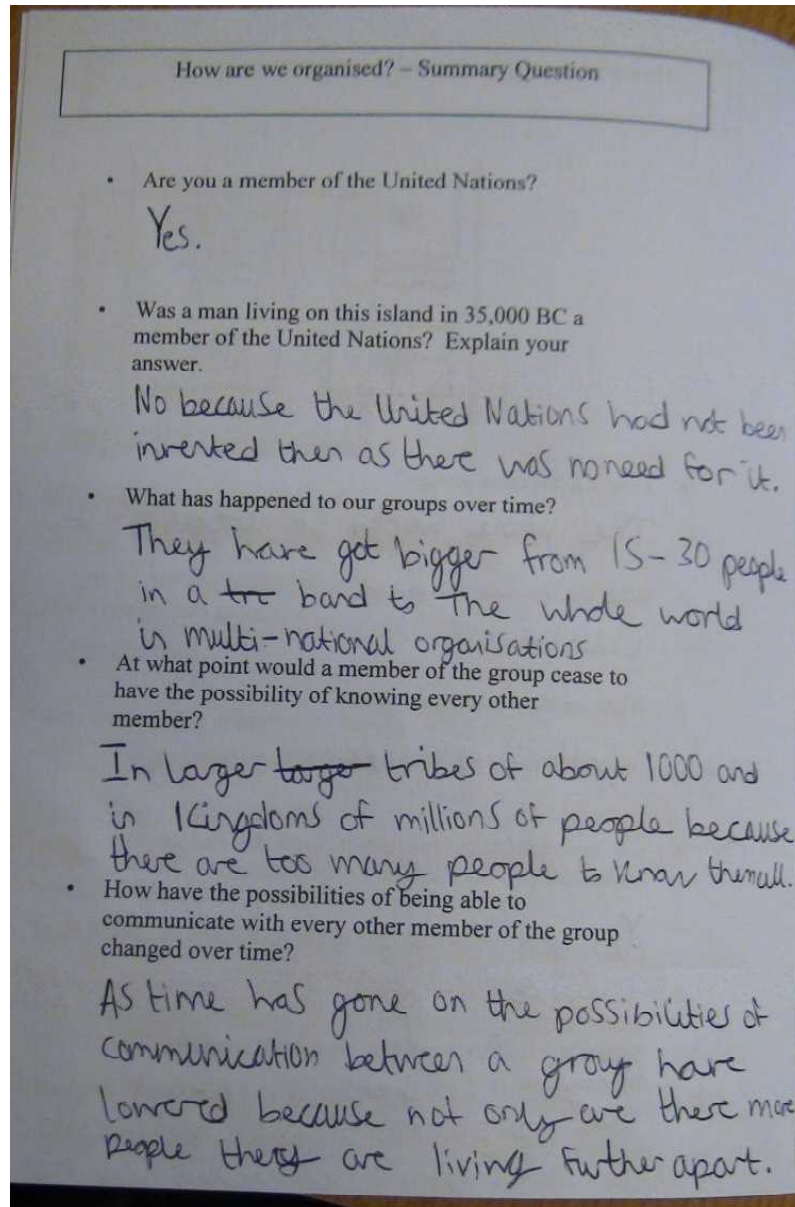 How are we organised? – Summary Question
• Are you a member of the United Nations?
Yes.
• Was a man living on this island in 35,000 BC a
member of the United Nations? Explain your
answer.
No because the United Nations had not been
invented then as there was no need for it.
• What has happened to our groups over time?
They have got bigger from 15-30 people
in a tre band to The whole world
in multi-national organisations
• At what point would a member of the group cease to
have the possibility of knowing every other
member?
In larger larger tribes of about 1000 and
in Kingdoms of millions of people because
there are too many people to know them all.
• How have the possibilities of being able to
communicate with every other member of the group
changed over time?
As time has gone on the possibilities of
communication between a group have
lowered because not only are there more
people they are living further apart.